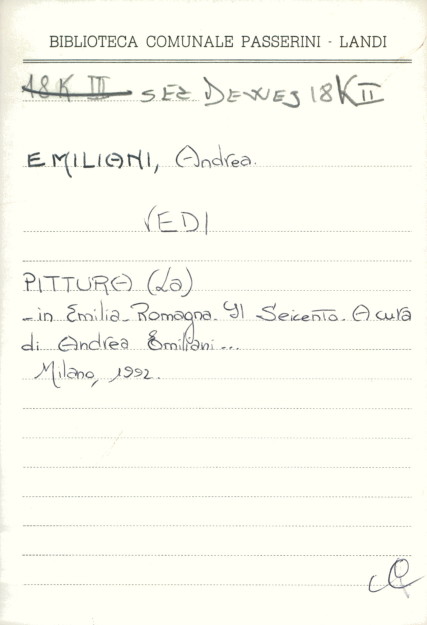 BIBLIOTECA COMUNALE PASSERINI - LANDI
18K III SEZ DEWEJ 18K II
EMILIANI, Andrea.
VEDI
PITTURA (La)
- in Emilia-Romagna. Il Seicento. A cura
di Andrea Emiliani...
Milano, 1992.